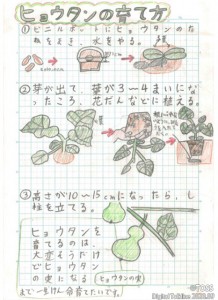 ヒョウタンの育て方
①ビニルポットにヒョウタンのた
ねをまき、水をやる。
②芽が出て、葉が3〜4まいにな
ったころ、花だんなどに植える。
③高さが10〜15cmになったら、し
柱を立てる。
ヒョウタンを
育てるのは、
大変そうだけ
どヒョウタン
の実になる
(ヒョウタンの実)
まで一生けん命育てたいです。